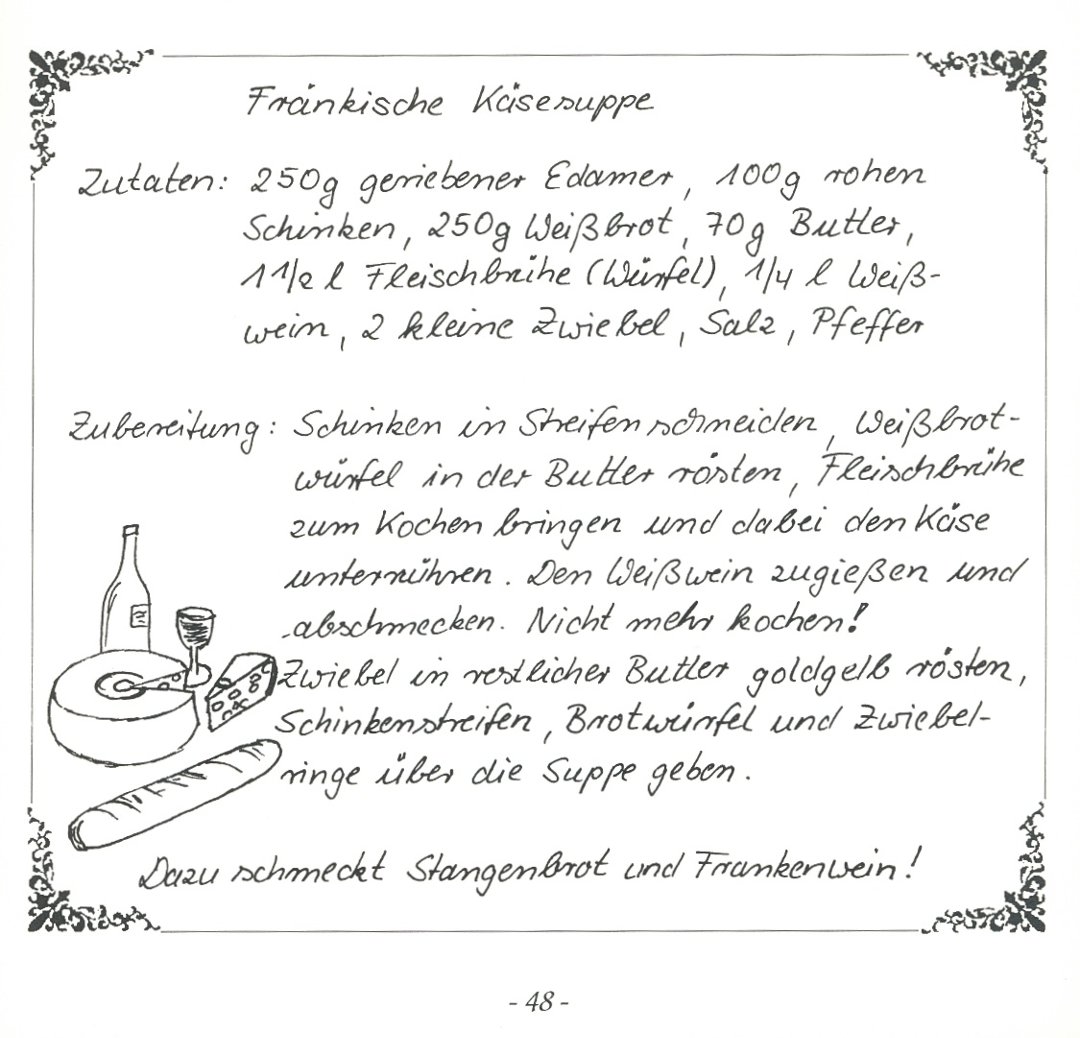 Fränkische Käsesuppe
Zutaten: 250g geriebener Edamer, 100g rohen
Schinken, 250g Weißbrot, 70g Butter,
1 1/2 l Fleischbrühe (Würfel), 1/4 l Weiß-
wein, 2 kleine Zwiebel, Salz, Pfeffer
Zubereitung: Schinken in Streifen schneiden, Weißbrot-
würfel in der Butter rösten, Fleischbrühe
zum Kochen bringen und dabei den Käse
unterrühren. Den Weißwein zugießen und
abschmecken. Nicht mehr kochen!
Zwiebel in restlicher Butter goldgelb rösten,
Schinkenstreifen, Brotwürfel und Zwiebel-
ringe über die Suppe geben.
Dazu schmeckt Stangenbrot und Frankenwein!
- 48 -